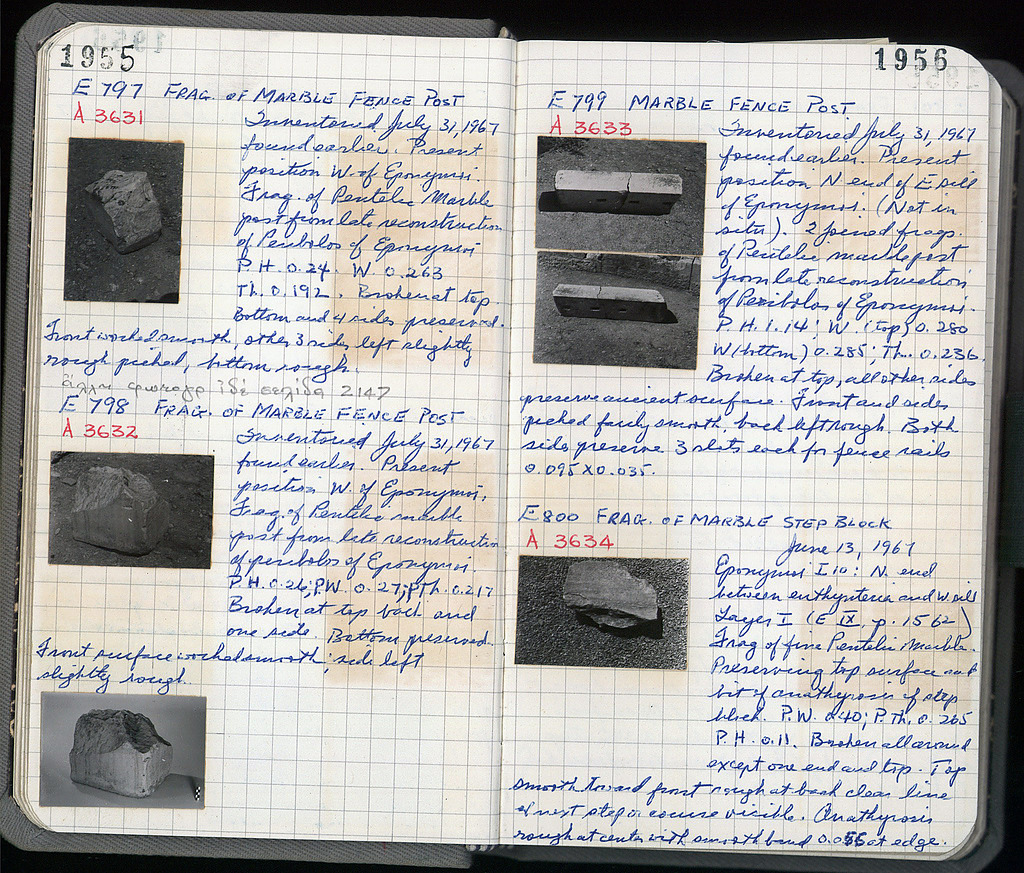 1955
E 797 FRAG. OF MARBLE FENCE POST
A 3631
Inventoried July 31, 1967
found earlier. Present
position W. of Eponymoi.
Frag. of Pentelic Marble
post from late reconstruction
of Peribolos of Eponymoi
P.H. 0.24. W. 0.263
Th. 0.192. Broken at top.
Bottom and 4 sides preserved.
Front worked smooth, other 3 sides left slightly
rough picked, bottom rough.
ἄλλη φωτογρ ἰδὲ σελίδα 2147
E 798 FRAG. OF MARBLE FENCE POST
A 3632
Inventoried July 31, 1967
found earlier. Present
position W. of Eponymoi.
Frag. of Pentelic marble
post from late reconstruction
of peribolos of Eponymoi.
P.H. 0.26; P.W. 0.27; P.Th. 0.217
Broken at top back and
one side. Bottom preserved.
Front surface worked smooth; side left
slightly rough.
1956
E 799 MARBLE FENCE POST.
A 3633
Inventoried July 31, 1967
found earlier. Present
position N end of E sill
of Eponymoi. (Not in
situ). 2 joined frags.
of Pentelic marble post
from late reconstruction
of Peribolos of Eponymoi.
P.H. 1.14; W. (top) 0.280
W (bottom) 0.285; Th. 0.236.
Broken at top, all other sides
preserve ancient surface. Front and sides
picked fairly smooth, back left rough. Both
sides preserve 3 slots each for fence rails
0.095 X 0.035.
E 800 FRAG. OF MARBLE STEP BLOCK
A 3634
June 13, 1967
Eponymoi I 10: N. end
between euthynteria and W sill
Layer I (E IX, p. 1562)
Frag of fine Pentelic Marble.
Preserving top surface and
bit of anathyrosis of step
block. P.W. 0.40; P.Th. 0.265
P.H. 0.11. Broken all around
except one end and top. Top
smooth toward front rough at back clear line
of next step or course visible. Anathyrosis
rough at center with smooth band 0.055 at edge.